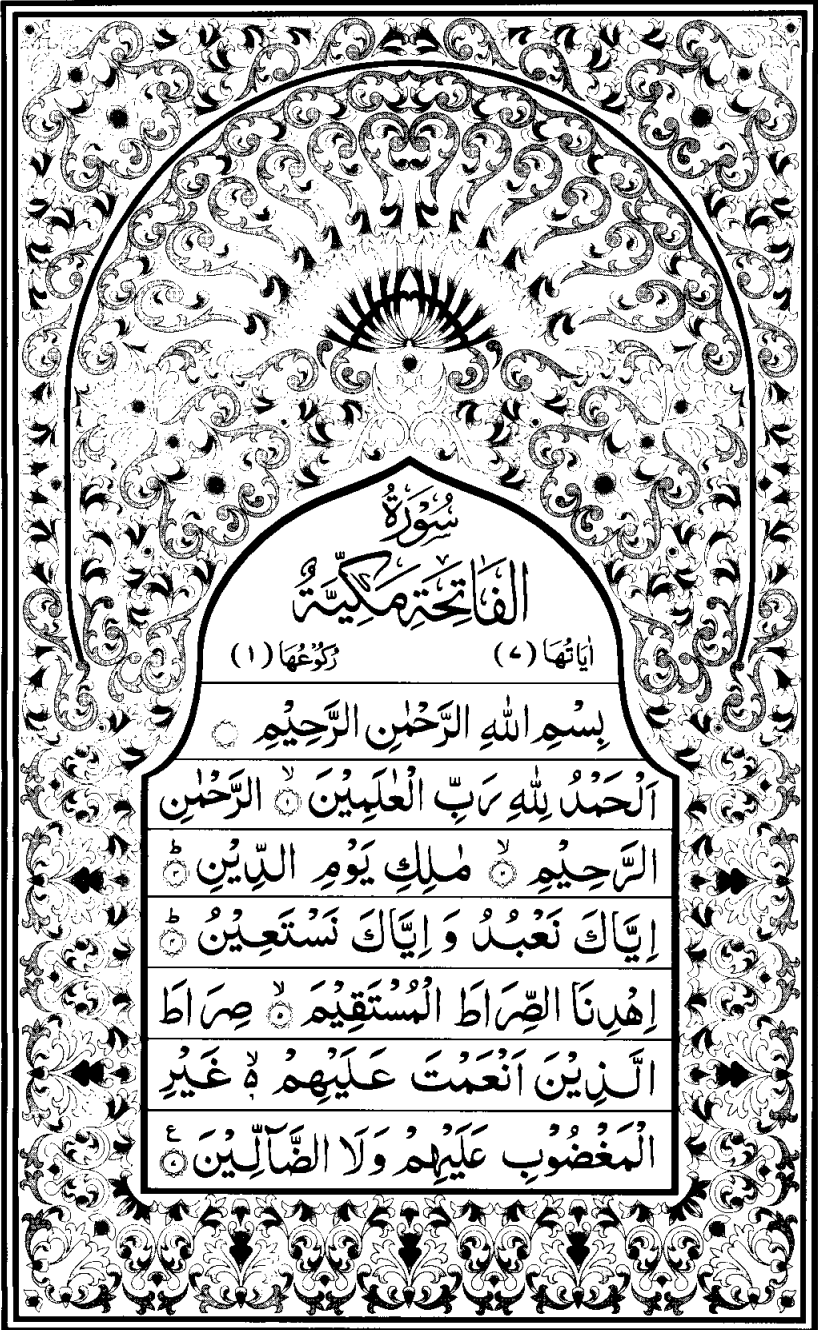 سُوْرَةُ
الْفَاتِحَةِ مَكِّيَّةٌ
اٰيَاتُهَا (٧) رُكُوْعُهَا (١)
بِسْمِ اللهِ الرَّحْمٰنِ الرَّحِيْمِ
اَلْحَمْدُ لِلهِ رَبِّ الْعٰلَمِيْنَ ۙ﴿١﴾ الرَّحْمٰنِ
الرَّحِيْمِ ۙ﴿٢﴾ مٰلِكِ يَوْمِ الدِّيْنِ ؕ﴿٣﴾
اِيَّاكَ نَعْبُدُ وَ اِيَّاكَ نَسْتَعِيْنُ ؕ﴿٤﴾
اِهْدِنَا الصِّرَاطَ الْمُسْتَقِيْمَ ۙ﴿٥﴾ صِرَاطَ
الَّذِيْنَ اَنْعَمْتَ عَلَيْهِمْ ۙ۬ غَيْرِ
الْمَغْضُوْبِ عَلَيْهِمْ وَلَا الضَّآلِّيْنَ ﴿٧﴾ ع